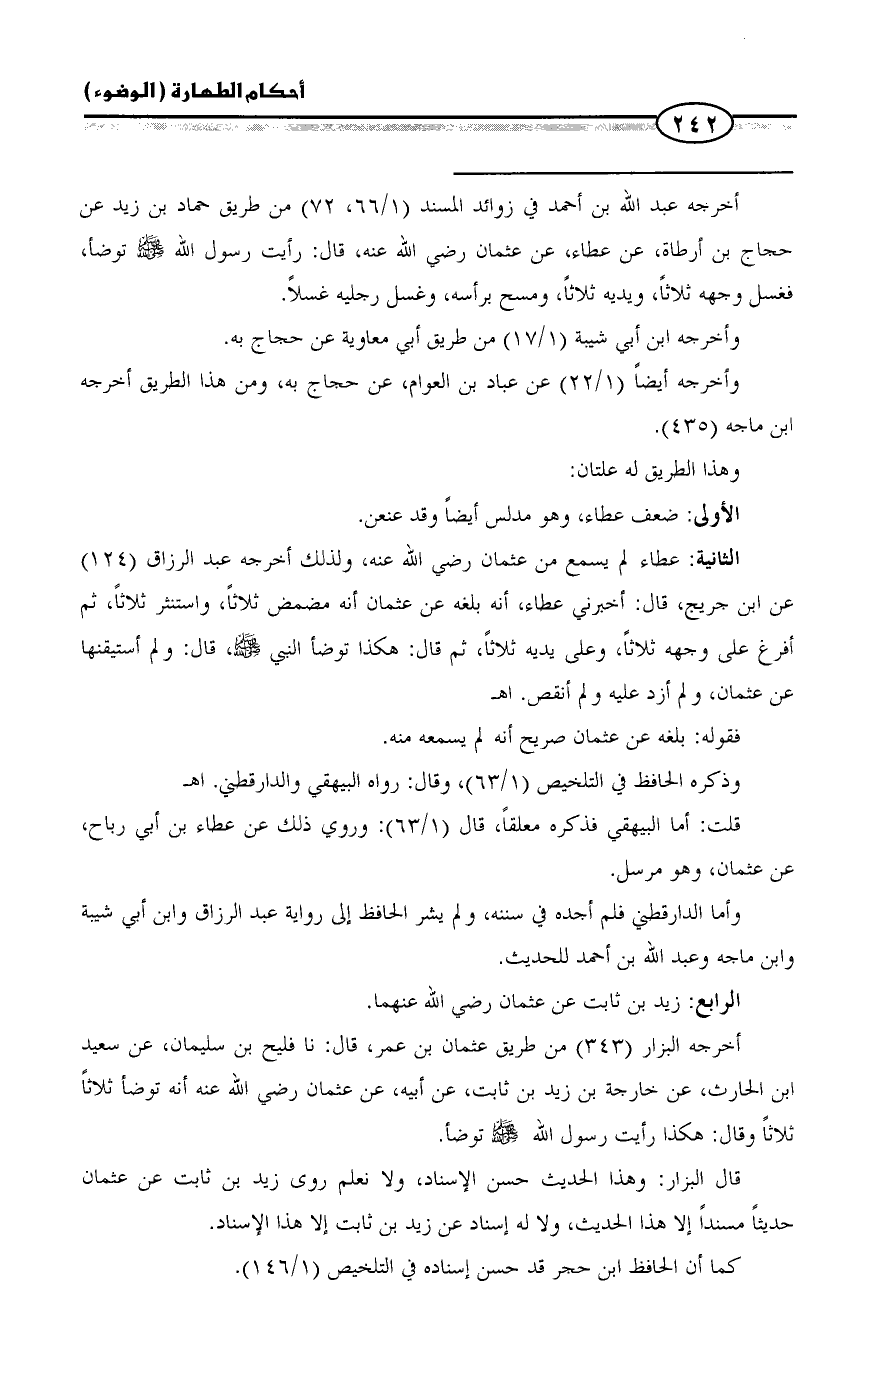 أحكام الطهارة (الوضوء)
٢٤٢
أخرجه عبد الله بن أحمد في زوائد المسند (٦٦/١، ٧٢) من طريق حماد بن زيد عن
حجاج بن أرطاة، عن عطاء، عن عثمان رضي الله عنه، قال: رأيت رسول الله ﷺ توضأ،
فغسل وجهه ثلاثاً، ويديه ثلاثاً، ومسح برأسه، وغسل رجليه غسلاً.
وأخرجه ابن أبي شيبة (١٧/١) من طريق أبي معاوية عن حجاج به.
وأخرجه أيضاً (٢٢/١) عن عباد بن العوام، عن حجاج به، ومن هذا الطريق أخرجه
ابن ماجه (٤٣٥).
وهذا الطريق له علتان:
الأولى: ضعف عطاء، وهو مدلس أيضاً وقد عنعن.
الثانية: عطاء لم يسمع من عثمان رضي الله عنه، ولذلك أخرجه عبد الرزاق (١٢٤)
عن ابن جريج، قال: أخبرني عطاء، أنه بلغه عن عثمان أنه مضمض ثلاثاً، واستنثر ثلاثاً، ثم
أفرغ على وجهه ثلاثاً، وعلى يديه ثلاثاً، ثم قال: هكذا توضأ النبي ﷺ، قال: ولم أستيقنها
عن عثمان، ولم أزد عليه ولم أنقص. اهـ
فقوله: بلغه عن عثمان صريح أنه لم يسمعه منه.
وذكره الحافظ في التلخيص (٦٣/١)، وقال: رواه البيهقي والدارقطني. اهـ
قلت: أما البيهقي فذكره معلقاً، قال (٦٣/١): وروي ذلك عن عطاء بن أبي رباح،
عن عثمان، وهو مرسل.
وأما الدارقطني فلم أجده في سننه، ولم يشر الحافظ إلى رواية عبد الرزاق وابن أبي شيبة
وابن ماجه وعبد الله بن أحمد للحديث.
الرابع: زيد بن ثابت عن عثمان رضي الله عنهما.
أخرجه البزار (٣٤٣) من طريق عثمان بن عمر، قال: نا فليح بن سليمان، عن سعيد
ابن الحارث، عن خارجة بن زيد بن ثابت، عن أبيه، عن عثمان رضي الله عنه أنه توضأ ثلاثاً
ثلاثاً وقال: هكذا رأيت رسول الله ﷺ توضأ.
قال البزار: وهذا الحديث حسن الإسناد، ولا نعلم روى زيد بن ثابت عن عثمان
حديثاً مسنداً إلا هذا الحديث، ولا له إسناد عن زيد بن ثابت إلا هذا الإسناد.
كما أن الحافظ ابن حجر قد حسن إسناده في التلخيص (١٤٦/١).